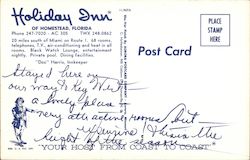 Holiday Inn
OF HOMESTEAD, FLORIDA
Phone 247-7020 - AC 305 TWX 248-0862
20 miles south of Miami on Route 1. 68 rooms,
telephones, T.V., air-conditioning and heat in all
rooms. Black Watch Lounge, entertainment
nightly. Private pool. Dining facilities.
"Doc" Harris, Innkeeper
Post Card
PLACE
STAMP
HERE
Stayed here on
our way to Key West
a lovely place
very attractive rooms but
the
"YOUR HOST FROM COAST TO COAST"